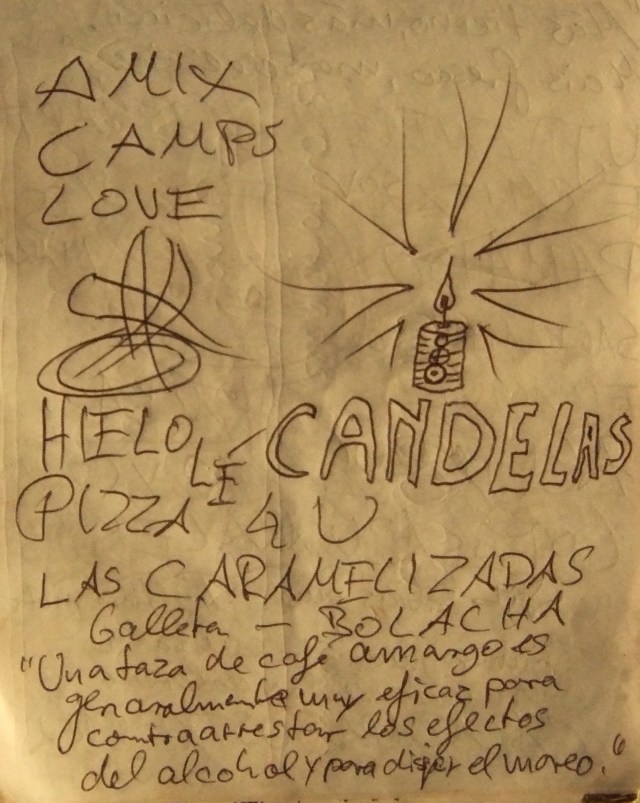 AMIX
CAMPS
LOVE
HIELO LÉ CANDELAS
PIZZA 4 U
LAS CARAMELIZADAS
Galleta — BOLACHA
"Una taza de café amargo es
generalmente muy eficaz para
contraarrestar los efectos
del alcohol y para disipr el mareo."